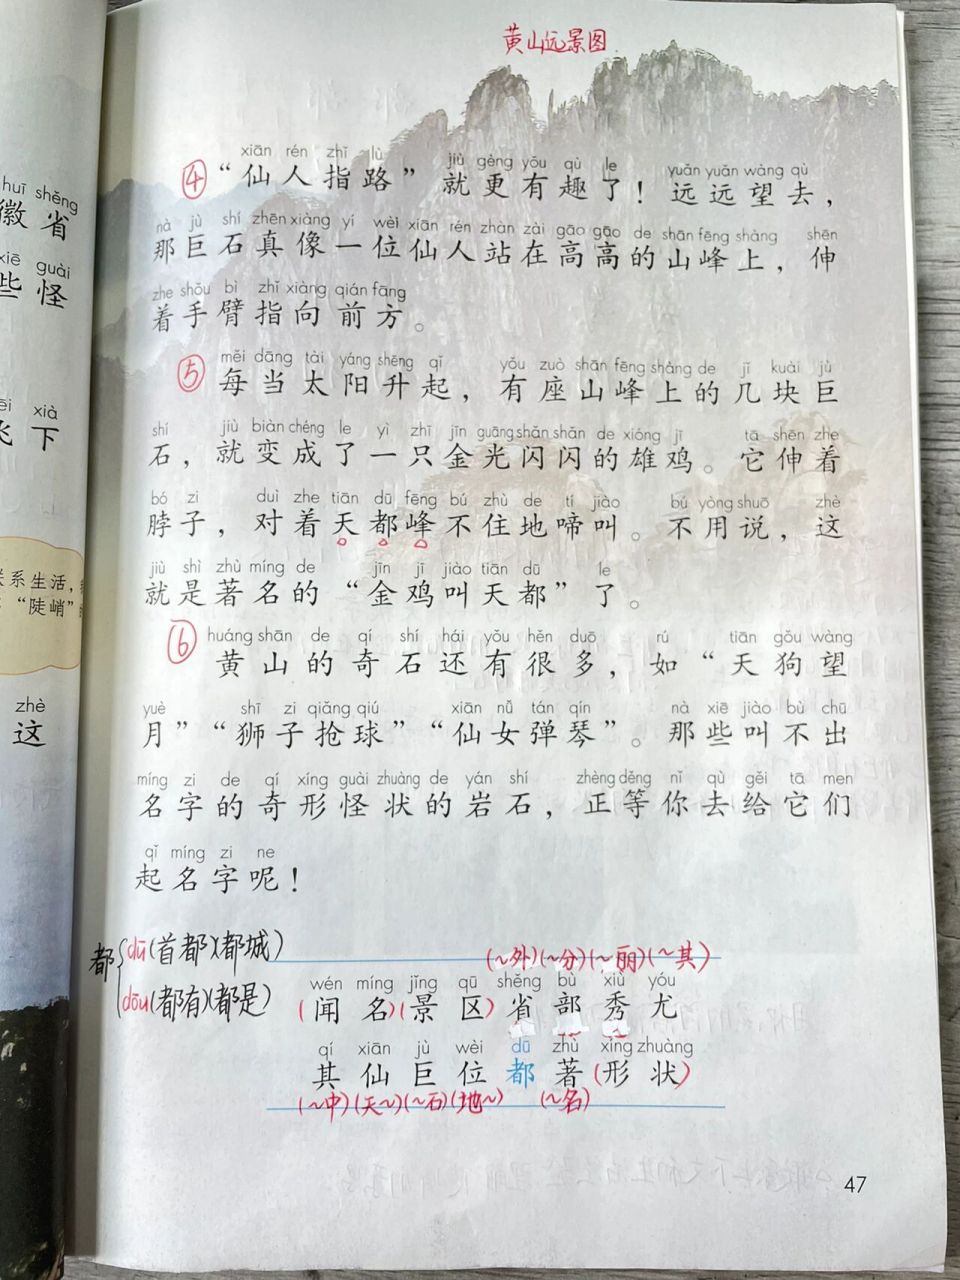 huī shěng
徽省
xiē guài
些怪
xià
飞下
联系生活，
“陡峭”
zhè
这
黄山远景图
xiān rén zhǐ lù jiù gèng yǒu qù le yuǎn yuǎn wàng qù
④“仙人指路”就更有趣了！远远望去，
nà jù shí zhēn xiàng yí wèi xiān rén zhàn zài gāo gāo de shān fēng shàng shēn
那巨石真像一位仙人站在高高的山峰上，伸
zhe shǒu bì zhǐ xiàng qián fāng
着手臂指向前方。
měi dāng tài yáng shēng qǐ yǒu zuò shān fēng shàng de jǐ kuài jù
⑤每当太阳升起，有座山峰上的几块巨
shí jiù biàn chéng le yì zhī jīn guāng shǎn shǎn de xióng jī tā shēn zhe
石，就变成了一只金光闪闪的雄鸡。它伸着
bó zi duì zhe tiān dū fēng bú zhù de tí jiào bú yòng shuō zhè
脖子，对着天都峰不住地啼叫。不用说，这
jiù shì zhù míng de jīn jī jiào tiān dū le
就是著名的“金鸡叫天都”了。
huáng shān de qí shí hái yǒu hěn duō rú tiān gǒu wàng
⑥黄山的奇石还有很多，如“天狗望
yuè shī zi qiǎng qiú xiān nǚ tán qín nà xiē jiào bù chū
月”“狮子抢球”“仙女弹琴”。那些叫不出
míng zi de qí xíng guài zhuàng de yán shí zhèng děng nǐ qù gěi tā men
名字的奇形怪状的岩石，正等你去给它们
qǐ míng zi ne
起名字呢！
都{dū(首都)(都城)
dōu(都有)(都是)
(～外)(～分)(～丽)(～其)
wén míng jǐng qū shěng bù xiù yóu
(闻名)(景区)省部秀尤
qí xiān jù wèi dū zhù xíng zhuàng
其仙巨位都著(形状)
(～中)(天～)(～石)(地～)(～名)
47